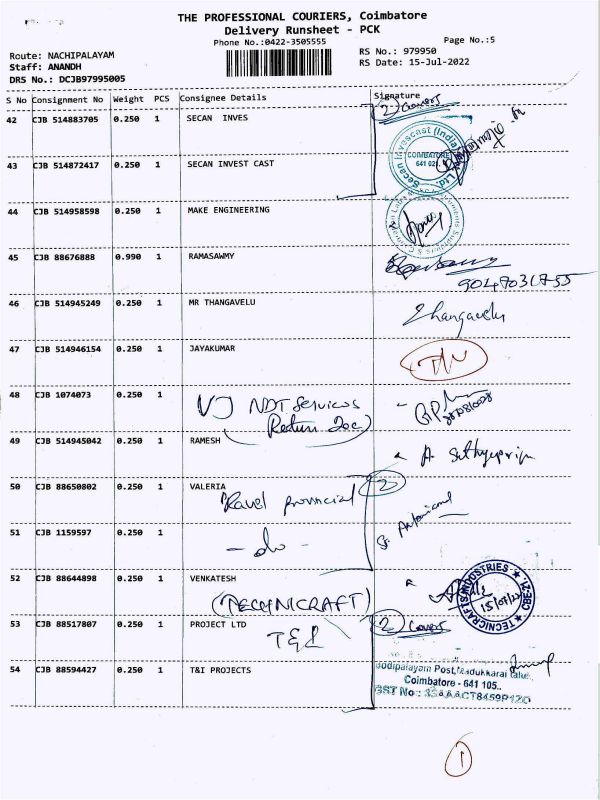 THE PROFESSIONAL COURIERS, Coimbatore
Delivery Runsheet - PCK
Phone No.:0422-3505555
Page No.:5
Route: NACHIPALAYAM
RS No.: 979950
Staff: ANANDH
RS Date: 15-Jul-2022
DRS No.: DCJB97995005
S No Consignment No Weight PCS Consignee Details Signature
42 CJB 514883705 0.250 1 SECAN INVES
2 Covers
Secan Invescast (India) Ltd.
COIMBATORE
641 021
43 CJB 514872417 0.250 1 SECAN INVEST CAST
44 CJB 514958598 0.250 1 MAKE ENGINEERING
45 CJB 88676888 0.990 1 RAMASAWMY
46 CJB 514945249 0.250 1 MR THANGAVELU
Thangavelu
47 CJB 514946154 0.250 1 JAYAKUMAR
48 CJB 1074073 0.250 1 VJ NDT Services
Return Doc
49 CJB 514945042 0.250 1 RAMESH
50 CJB 88650802 0.250 1 VALERIA
2
provincial
51 CJB 1159597 0.250 1 - do -
52 CJB 88644898 0.250 1 VENKATESH
(TECHNICRAFT)
TECNICRAFTS INDUSTRIES ★ CBE-21. ★
53 CJB 88517807 0.250 1 PROJECT LTD
T&I
2 Covers
54 CJB 88594427 0.250 1 T&I PROJECTS
Coimbatore - 641 105..
GST No :
1